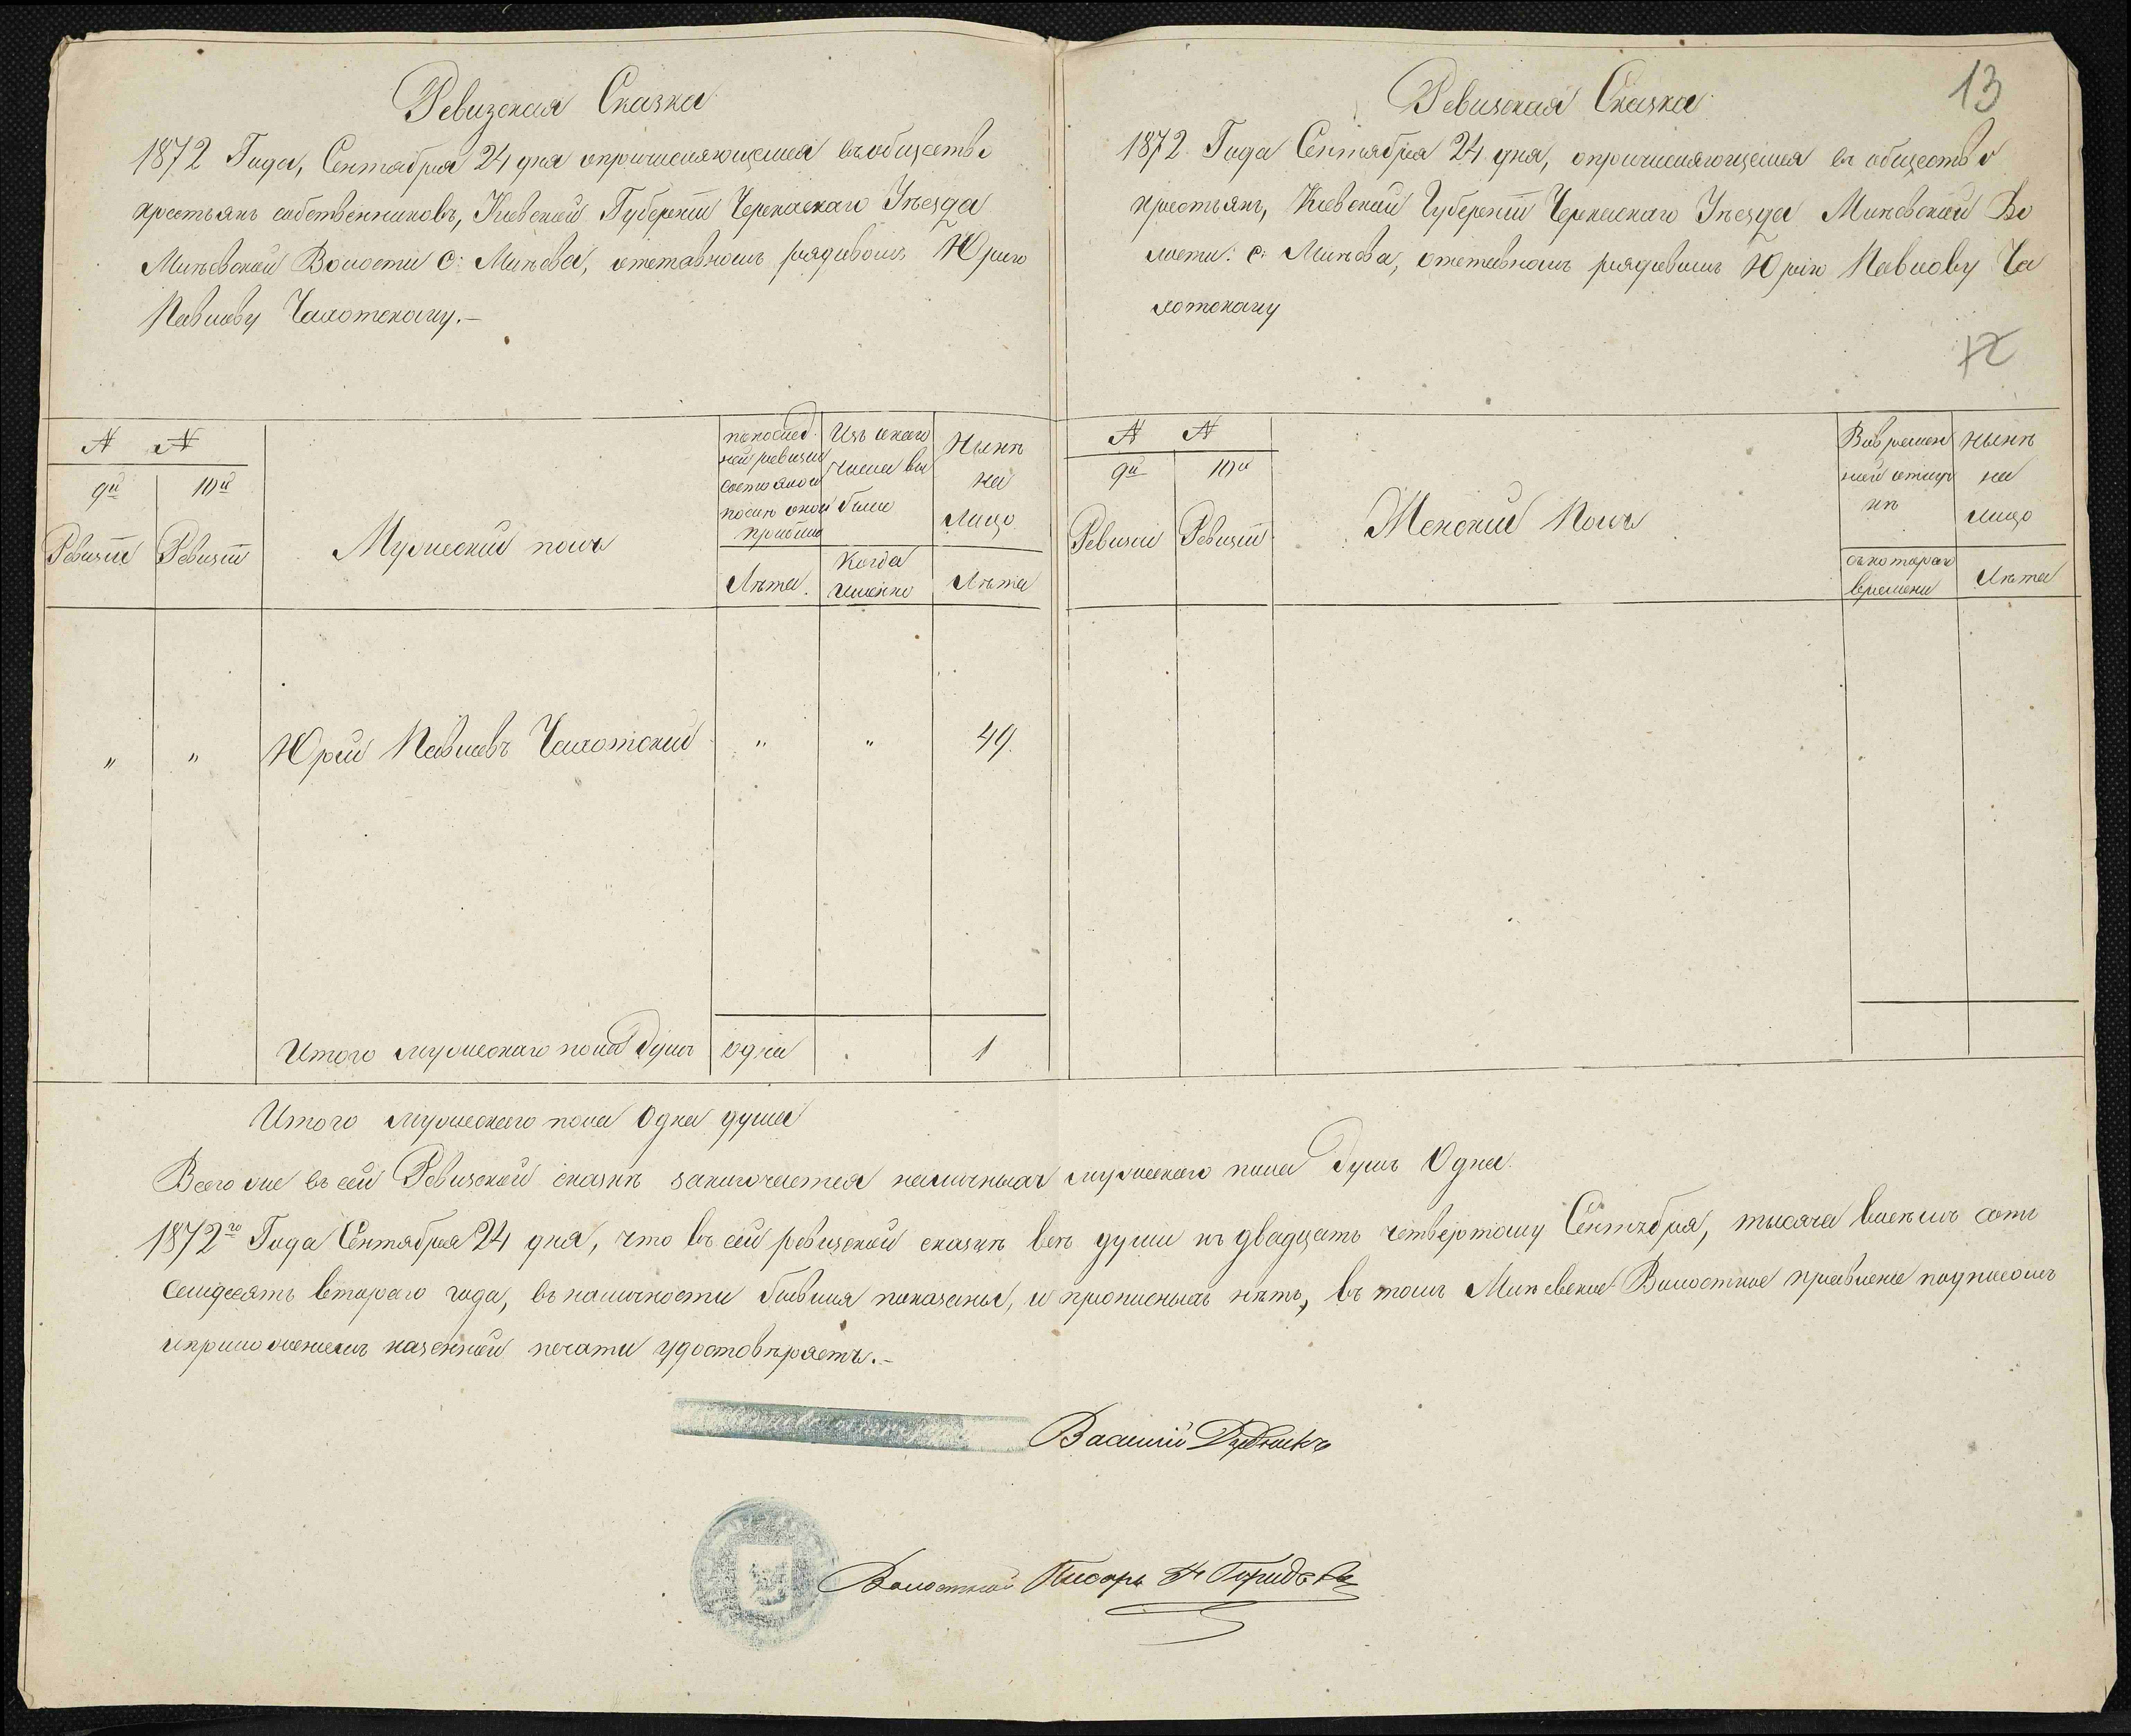 Ревизская Сказка
1872 Года, Сентября 24 дня опричисляющемся въ обществе
крестьянъ собственниковъ, Киевской Губернiи Черкаскаго Уѣзда
Млѣевской Волости с: Млѣева, отставномъ рядовомъ Юрию
Павлову Чалотскому.-
№ №
9й 10й
Ревизiи Ревизiи
Мужеский полъ
по послед
ней ревизии
состояло и
после оной
прибыло
Лѣта.
Изъ онаго
числа вы
было
Когда
именно
Нынѣ
на
лицо
Лѣта
" " Юрий Павловъ Чалотский " " 49.
Итого мужескаго пола душъ одна 1
13
Ревизская Сказка
1872 Года Сентября 24 дня, опричисляющемся въ обществе
крестьянъ, Киевской Губернiи Черкаскаго Уѣзда Млѣевской Во
лости: с: Млѣева, отставномъ рядовомъ Юрiю Павлову Ча
лотскому
12
№ №
9й 10й
Ревизiи Ревизiи
Женский Полъ
Вовремен
ной отлуч
кѣ
съ котораго
времени
Нынѣ
на
лицо
Лѣта
Итого мужескаго пола Одна душа
Всего же въ сей Ревизской сказкѣ заключается наличныхъ мужескаго пола душъ Одна.
1872го Года Сентября 24 дня, что въ сей ревизской сказкѣ всѣ души къ двадцать четвертому Сентября, тысяча восемь сотъ
семдесять втораго года, въ наличности бывшия показаны, и прописныхъ нѣтъ, въ томъ Млѣевское Волостное правление подписомъ
и приложениемъ казенной печати удостовѣряетъ.-
Василий
Волостной Писарь